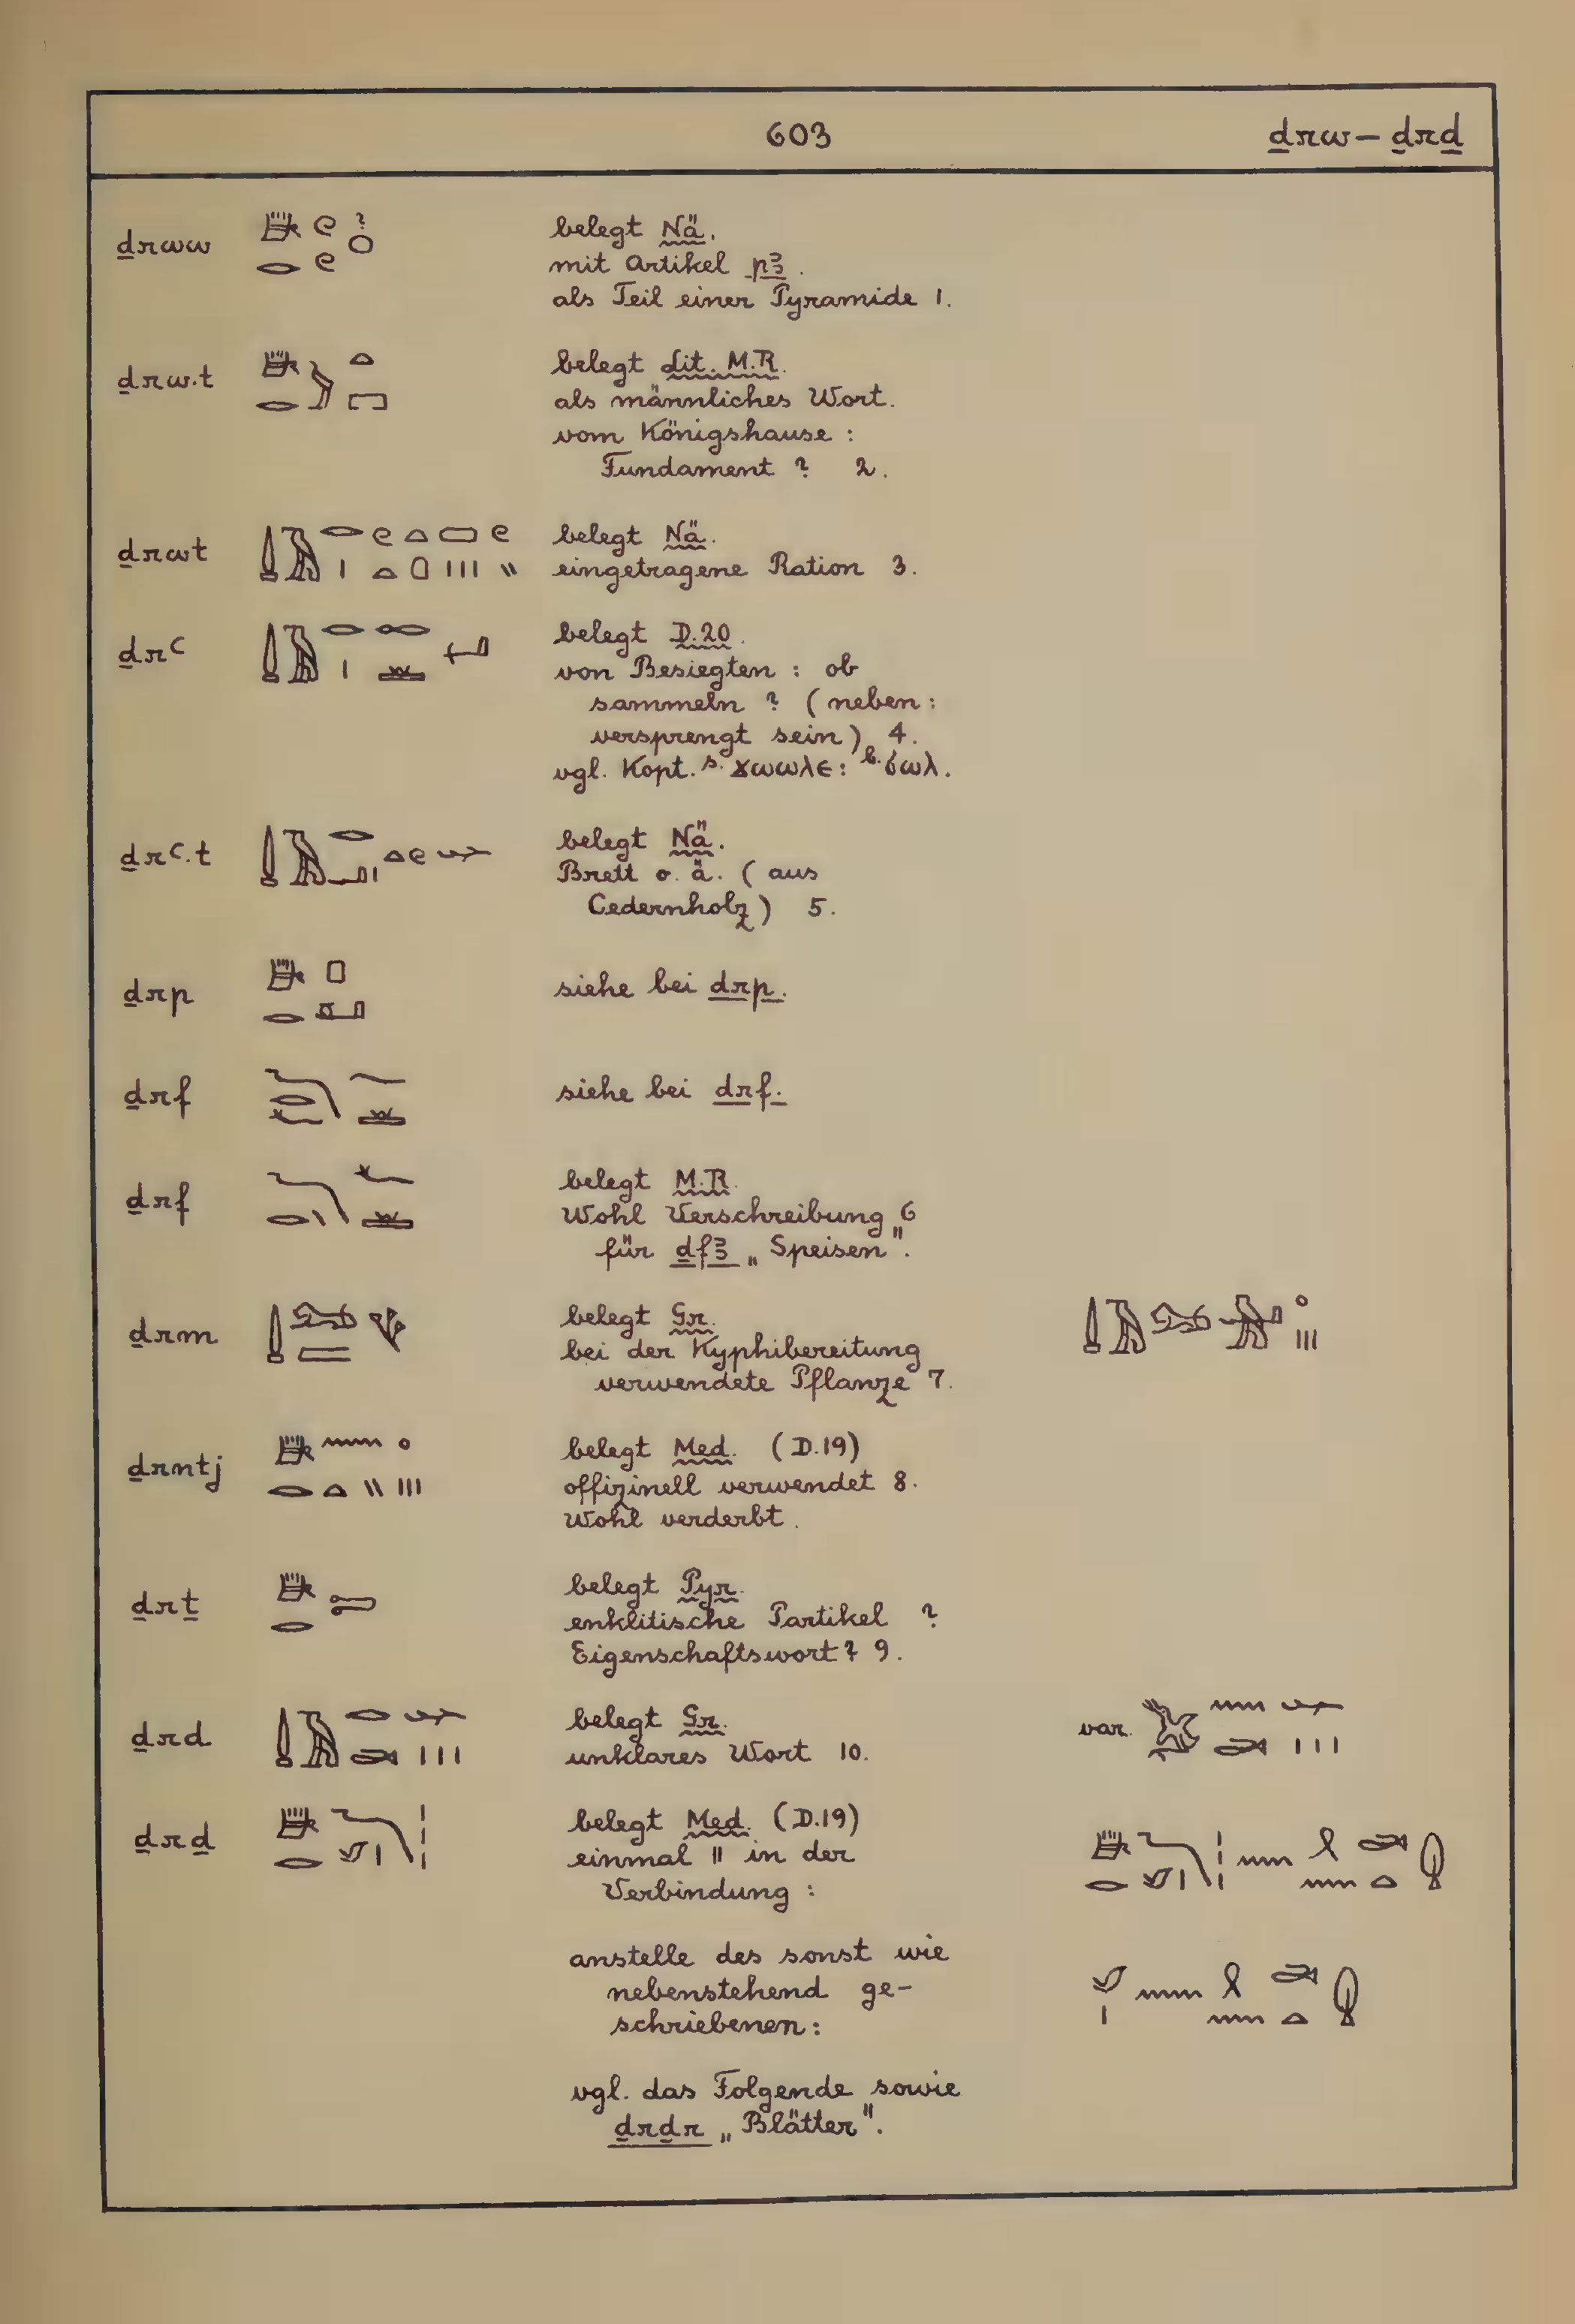 603
ḏrw – ḏrḏ
ḏrww
belegt Nä.
mit Artikel pꜣ.
als Teil einer Pyramide 1.
ḏrw.t
belegt Lit. M.R.
als männliches Wort.
vom Königshause :
Fundament ? 2.
ḏrwt
belegt Nä.
eingetragene Ration 3.
ḏrꜥ
belegt D.20.
von Besiegten : ob
sammeln ? (neben :
versprengt sein) 4.
vgl. Kopt. s. ϫⲱⲱⲗⲉ : b. ϭⲱⲗ.
ḏrꜥ.t
belegt Nä.
Brett o. ä. (aus
Cedernholz) 5.
ḏrp
siehe bei drp.
ḏrf
siehe bei drf.
ḏrf
belegt M.R.
Wohl Verschreibung 6
für ḏfꜣ „Speisen".
ḏrm
belegt Gr.
bei der Kyphibereitung
verwendete Pflanze 7.
ḏrntj
belegt Med. (D.19)
offizinell verwendet 8.
Wohl verderbt.
ḏrṯ
belegt Pyr.
enklitische Partikel ?
Eigenschaftswort ? 9.
ḏrd
belegt Gr.
var.
unklares Wort 10.
ḏrḏ
belegt Med. (D.19)
einmal 11 in der
Verbindung :
anstelle des sonst wie
nebenstehend ge-
schriebenen :
vgl. das Folgende sowie
ḏrḏr „Blätter".